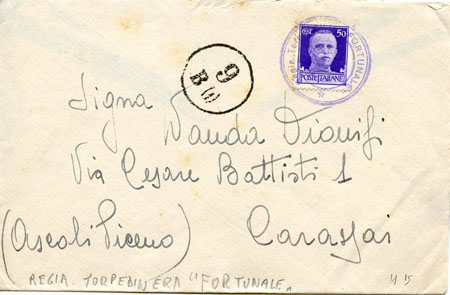 CENT. 50
POSTE ITALIANE
FORTUNALE
9
B (1)
Sig.na
Wanda Dionisi
Via Cesare Battisti 1
(Ascoli Piceno) Carassai
REGIA TORPEDINIERA "FORTUNALE"